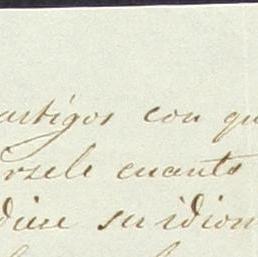 artigos con qu
rsele cuanto
dice su idiom